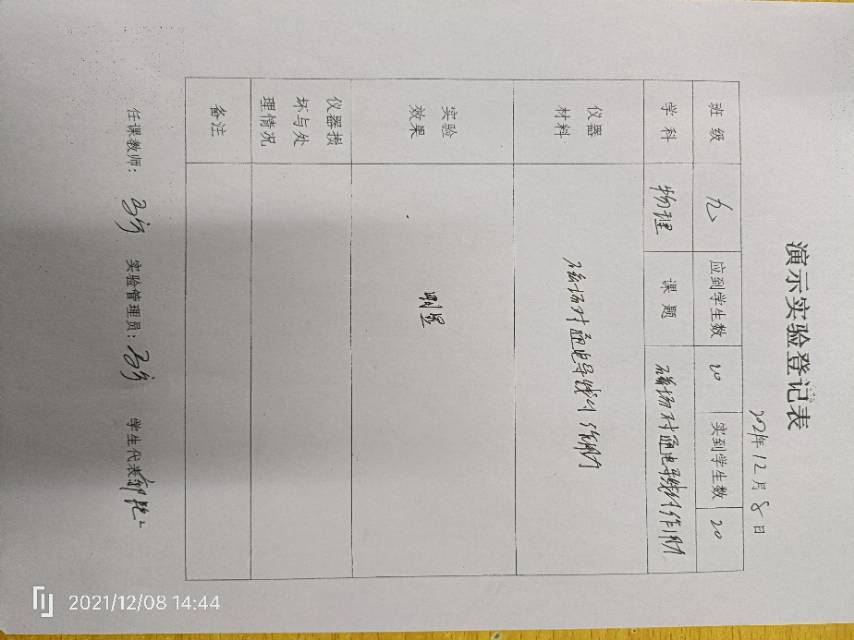 演示实验登记表
2021年12月8日
班级 九 应到学生数 20 实到学生数 20
学科 物理 课题 磁场对通电导线的作用力
仪器
材料
磁场对通电导线的作用力
实验
效果
明显
仪器损
坏与处
理情况
备注
任课教师: 实验管理员: 学生代表
2021/12/08 14:44